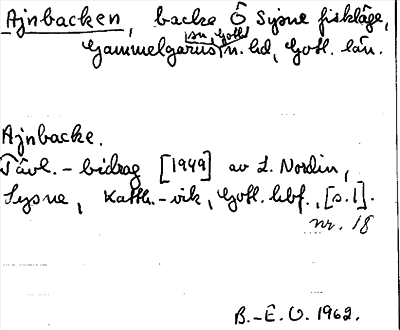 Ajnbacken, backe Ö Sysne fiskläge,
Gammelgarns sn, Gotl. n. hd, Gotl. län.
Ajnbacke.
Tävl.-bidrag [1949] av L. Nordin,
Sysne, Katth.-vik, Gotl. hbf., [s.1].
nr. 18
B.-E. O. 1962.